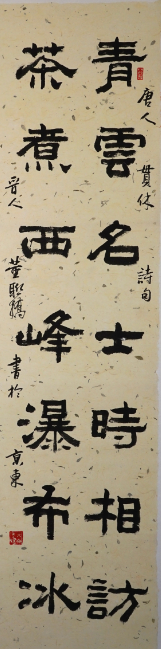 青雲名士時相訪
茶煮西峰瀑布冰
唐人貫休詩句
晋人董聯橋書於京東